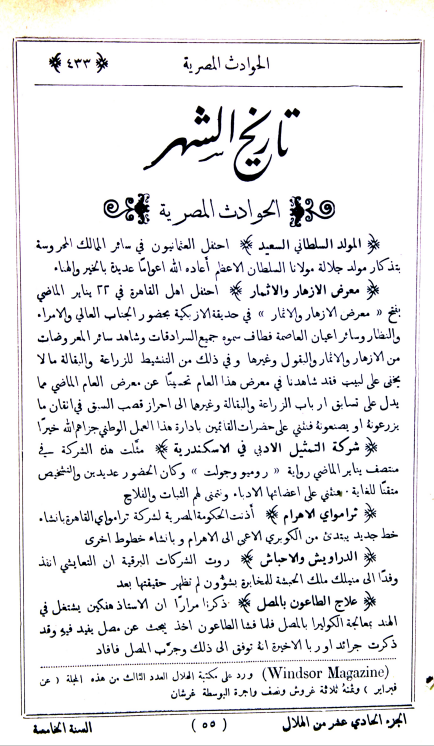 الحوادث المصرية
﴿ ٤٣٣ ﴾
تاريخ الشهر
الحوادث المصرية
﴿ المولد السلطاني السعيد ﴾ احتفل العثمانيون في سائر الممالك المحروسة
بتذكار مولد جلالة مولانا السلطان الاعظم أعاده الله اعوامًا عديدة بالخير والهناء
﴿ معرض الازهار والاثمار ﴾ احتفل اهل القاهرة في ٢٢ يناير الماضي
بفتح « معرض الازهار والاثمار » في حديقة الازبكية بحضور الجناب العالي والامراء
والنظار وسائر اعيان العاصمة فطاف سموه جميع السرادقات وشاهد سائر المعروضات
من الازهار والاثمار والبقول وغيرها وفي ذلك من التنشيط للزراعة والبقالة ما لا
يخفى على لبيب فقد شاهدنا في معرض هذا العام تحسينًا عن معرض العام الماضي مما
يدل على تسابق ارباب الزراعة والبقالة وغيرها الى احراز قصب السبق في اتقان ما
يزرعونه او يصنعونه فنثني على حضرات القائمين بادارة هذا العمل الوطني جزاهم الله خيرًا
﴿ شركة التمثيل الادبي في الاسكندرية ﴾ مثّلت هذه الشركة في
منتصف يناير الماضي رواية « روميو وجولت » وكان الحضور عديدين والتشخيص
متقنًا للغاية . فنثني على اعضائها الادباء ونتمنى لهم الثبات والفلاح
﴿ ترامواي الاهرام ﴾ أذنت الحكومة المصرية لشركة ترامواي القاهرة بانشاء
خط جديد يبتدئ من الكوبري الاعمى الى الاهرام وبانشاء خطوط اخرى
﴿ الدراويش والاحباش ﴾ روت الشركات البرقية ان التعايشي انفذ
وفدًا الى منيلك ملك الحبشة للمخابرة بشؤون لم تظهر حقيقتها بعد
﴿ علاج الطاعون بالمصل ﴾ ذكرنا مرارًا ان الاستاذ هفكين يشتغل في
الهند بمعالجة الكوليرا بالمصل فلما فشا الطاعون اخذ يبحث عن مصل يفيد فيه وقد
ذكرت جرائد اوربا الاخيرة انه توفق الى ذلك وجرّب المصل فافاد
(Windsor Magazine) ورد على مكتبة الهلال العدد الثالث من هذه المجلة ( عن
فبراير ) وثمنه ثلاثة غروش ونصف واجرة البوسطة غرشان
الجزء الحادي عشر من الهلال
( ٥٥ )
السنة الخامسة